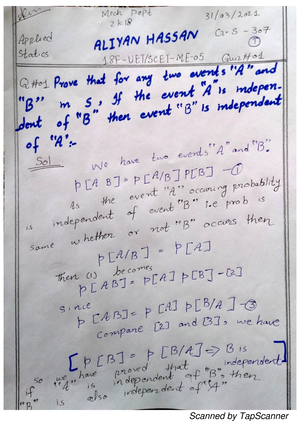 Mech Dept
2k18
31/03/2021
Applied
Statics
ALIYAN HASSAN
18F-UET/SCET-ME-05
Cr. S - 307
①
Quiz#01
Q#01 Prove that for any two events "A" and
"B" in S, If the event "A" is indepen-
dent of "B" then event "B" is independent
of "A":-
Sol
We have two events "A" and "B".
P[A B] = P[A/B] P[B] — ①
As the event "A" occuring probability
is independent of event "B" i.e prob is
same whether or not "B" occurs then
P[A/B] = P[A]
Then (1) becomes
P[AB] = P[A] P[B] — [2]
Since
P[AB] = P[A] P[B/A] — ③
Compare [2] and [3], we have
[P[B] = P[B/A] => B is
independent]
So we have proved that
if "A" is independent of "B", then
"B" is also independent of "A"
Scanned by TapScanner